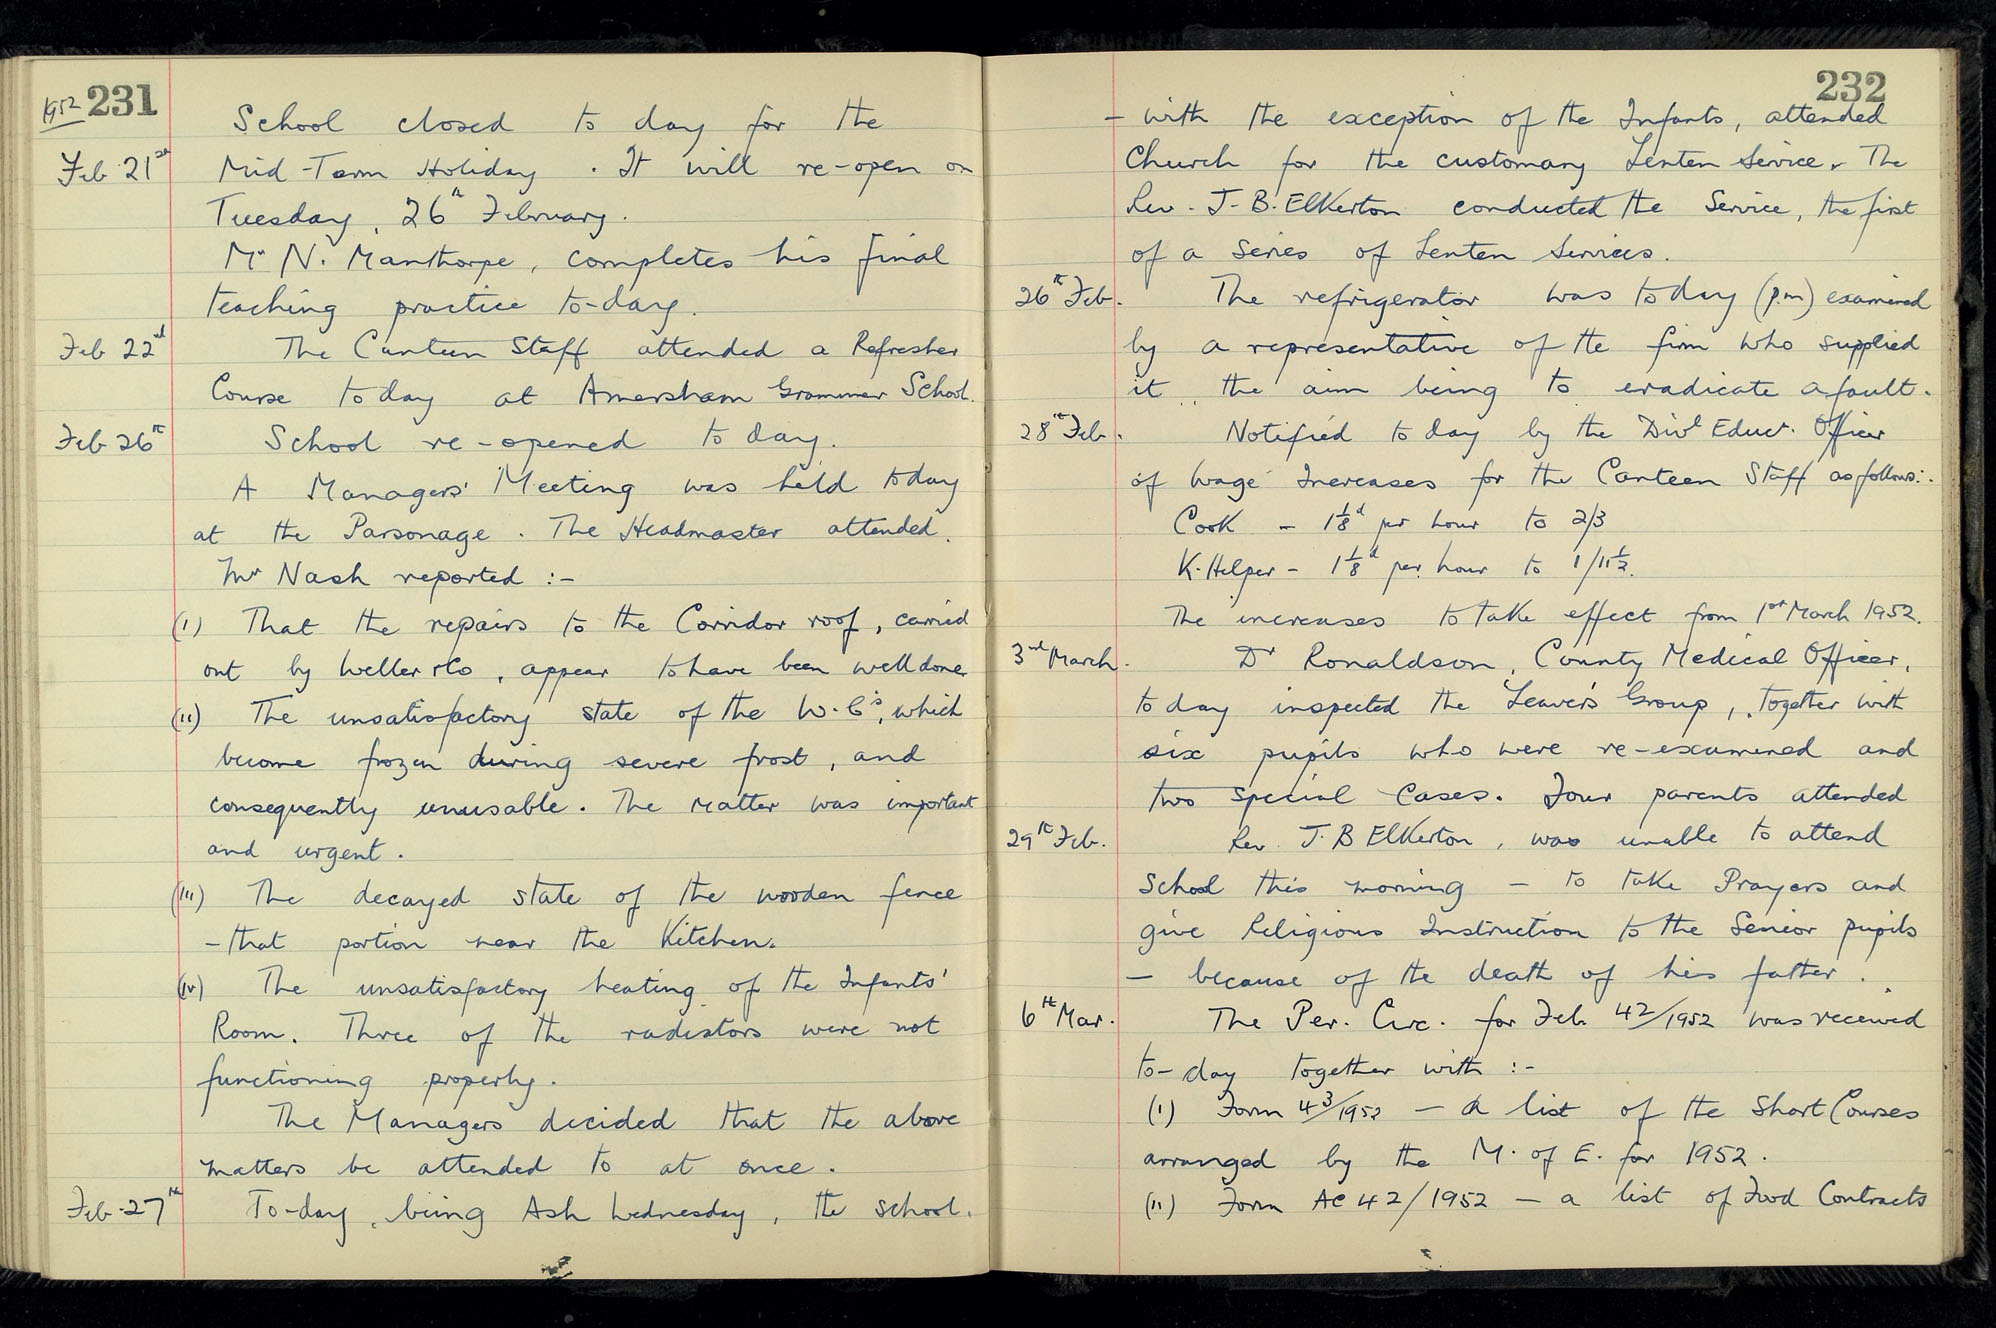 1952 231
School closed to day for the
Feb 21st Mid-Term Holiday. It will re-open on
Tuesday, 26th February.
Mr N. Manthorpe, completes his final
teaching practice to-day.
Feb 22nd The Canteen Staff attended a Refresher
Course to day at Amersham Grammar School.
Feb 26th School re-opened to day.
A Managers' Meeting was held today
at the Parsonage. The Headmaster attended.
Mr Nash reported :-
(i) That the repairs to the Corridor roof, carried
out by Weller & Co, appear to have been well done
(ii) The unsatisfactory state of the W.C's, which
become frozen during severe frost, and
consequently unusable. The matter was important
and urgent.
(iii) The decayed state of the wooden fence
- that portion near the Kitchen.
(iv) The unsatisfactory heating of the Infants'
Room. Three of the radiators were not
functioning properly.
The Managers decided that the above
matters be attended to at once.
Feb. 27th To-day, being Ash Wednesday, the school.
232
- with the exception of the Infants, attended
Church for the customary Lenten Service. The
Rev. J. B. Elkerton conducted the Service, the first
of a series of Lenten Services.
26th Feb. The refrigerator was to day (p.m) examined
by a representative of the firm who supplied
it, the aim being to eradicate a fault.
28th Feb. Notified to day by the Divl Educt. Officer
of Wage Increases for the Canteen Staff as follows:.
Cook - 1 1/8d per hour to 2/3
K. Helper - 1 1/8d per hour to 1/11 1/2.
The increases to take effect from 1st March 1952.
3rd March. Dr Ronaldson, County Medical Officer,
to day inspected the Leavers Group, together with
six pupils who were re-examined and
two special Cases. Four parents attended
29th Feb. Rev. J. B Elkerton, was unable to attend
School this morning - to take Prayers and
give Religious Instruction to the Senior pupils
- because of the death of his father.
6th Mar. The Per. Circ. for Feb. 42/1952 was received
to-day together with :-
(i) Form 43/1952 - a list of the Short Courses
arranged by the M. of E. for 1952.
(ii) Form AC 42/1952 - a list of Food Contracts